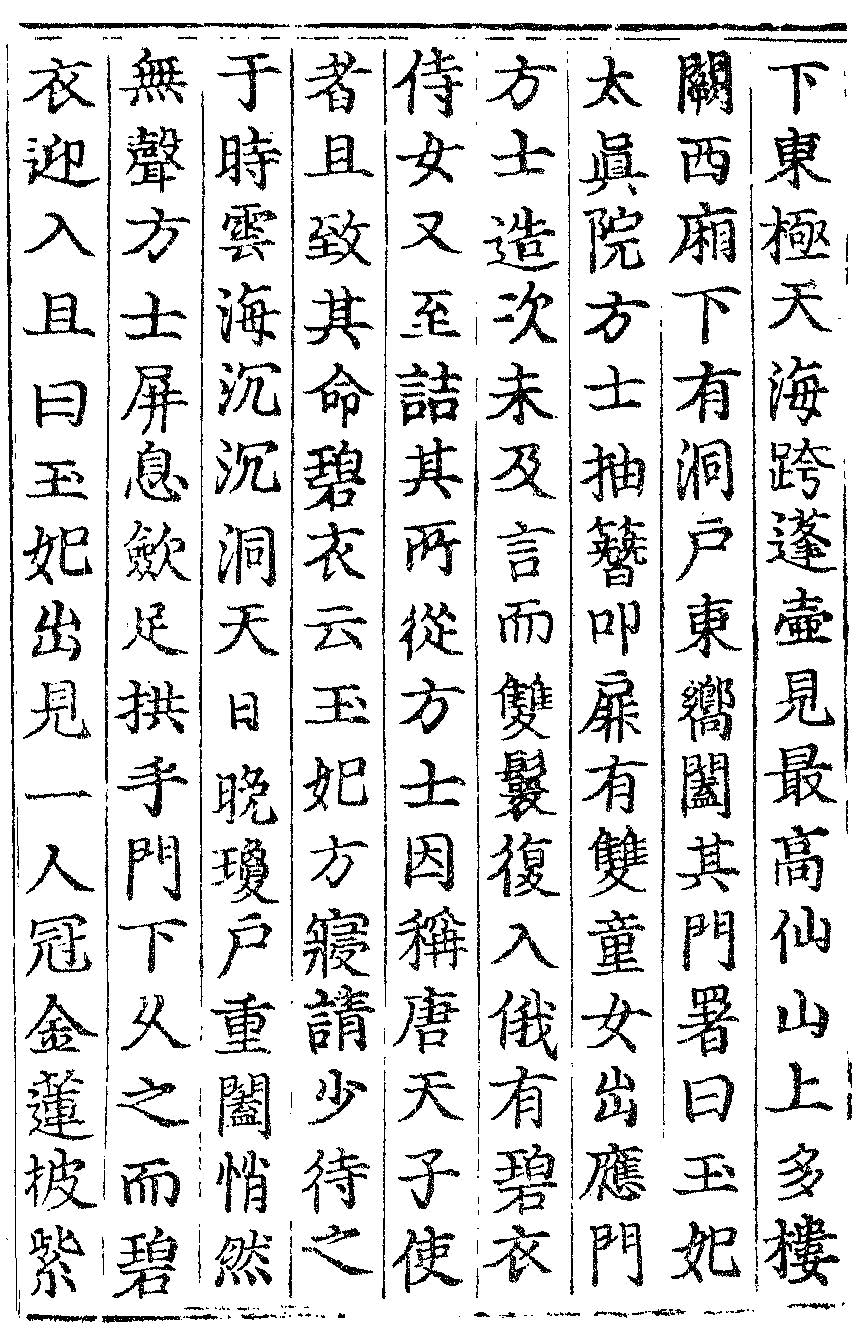 下東極天海跨蓬壺見最高仙山上多樓
闕西廂下有洞戸東嚮闔其門署曰玉妃
太眞院方士抽簪叩扉有雙童女出應門
方士造次未及言而雙鬟復入俄有碧衣
侍女又至詰其所從方士因稱唐天子使
者且致其命碧衣云玉妃方寢請少待之
于時雲海沉沉洞天日晚瓊戸重闔悄然
無聲方士屏息歛足拱手門下乆之而碧
衣迎入且曰玉妃出見一人冠金蓮披紫